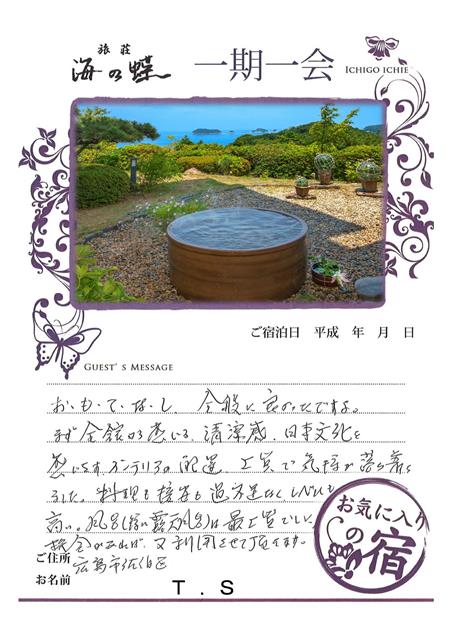 旅荘
海の蝶
一期一会
ICHIGO ICHIE
ご宿泊日 平成 年 月 日
GUEST'S MESSAGE
お・も・て・な・し、全般に良かったですね。
まず全館から感じる、清潔感、日本文化を
感じさすインテリアの配置、工夫で気持が落ち着き
ました。料理も接客も過不足なくレベルも
高い。風呂(特に露天風呂)は最上質でした。
機会があれば、又利用させて頂きます。
ご住所 広島市佐伯区
お名前 T.S
お気に入り
の宿